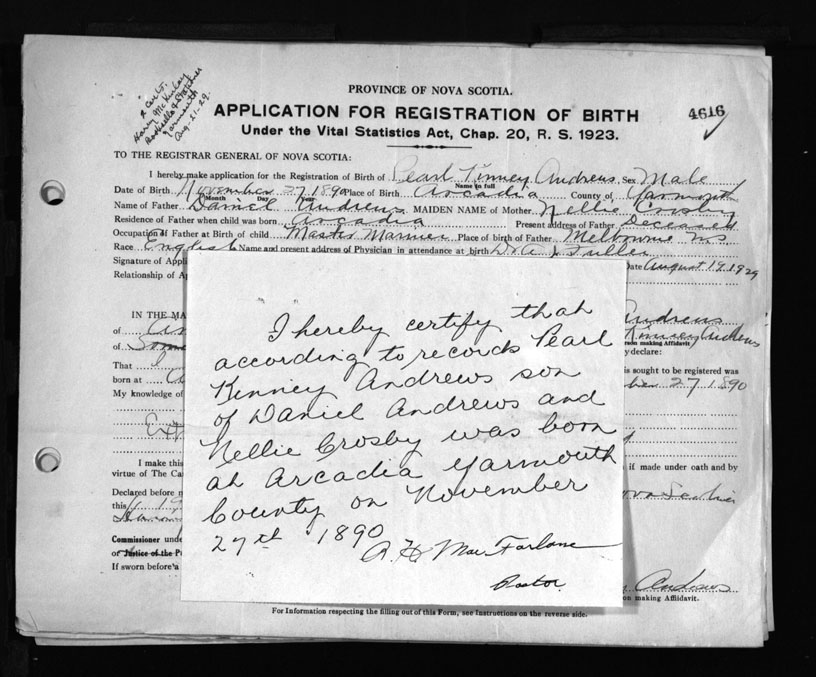 PROVINCE OF NOVA SCOTIA.
APPLICATION FOR REGISTRATION OF BIRTH
4616
Under the Vital Statistics Act, Chap. 20, R. S. 1923.
Harry McKinlay
Yarmouth
Aug-21-29.
TO THE REGISTRAR GENERAL OF NOVA SCOTIA:
I hereby make application for the Registration of Birth of Pearl Kinney Andrews Sex Male
Name in full
Date of Birth November 27 1890 Place of Birth Arcadia County of Yarmouth
Month Day Year
Name of Father Daniel Andrews MAIDEN NAME of Mother Nellie Crosby
Residence of Father when child was born Arcadia Present address of Father Deceased
Occupation of Father at Birth of child Master Mariner Place of birth of Father Melbourne NS
Race English Name and present address of Physician in attendance at birth Dr A J Fuller
Signature of Appli Date August 19 1929
Relationship of A
IN THE MA Andrews
of Kinney Andrews
of rson making Affidavit
That I y declare:
is sought to be registered was
born at ber 27 1890
My knowledge of
I make this if made under oath and by
virtue of The Ca
Declared before m Nova Scotia
this 19
Commissioner unde
or Justice of the P
If sworn before a Andrews
on making Affidavit.
I hereby certify that
according to records Pearl
Kinney Andrews son
of Daniel Andrews and
Nellie Crosby was born
at Arcadia Yarmouth
County on November
27th 1890
A. H. MacFarlane
Pastor
For Information respecting the filling out of this Form, see Instructions on the reverse side.